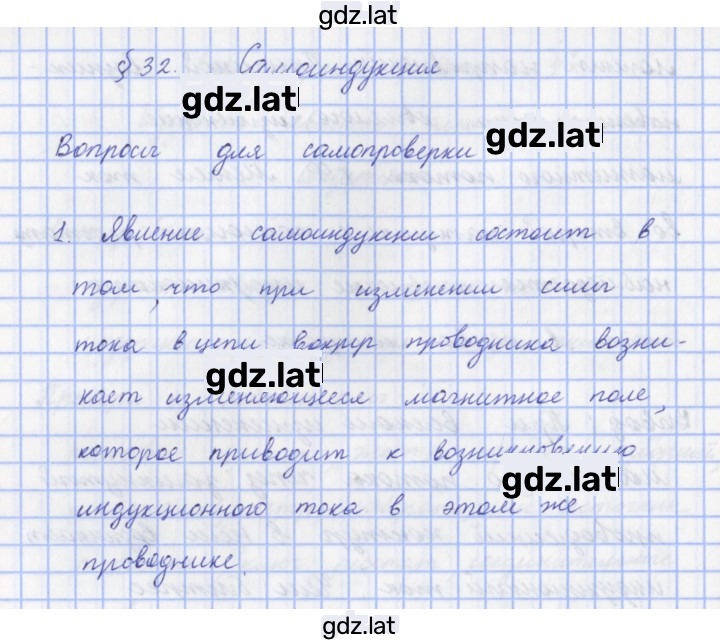 gdz.lat
§ 32. Самоиндукция
gdz.lat
Вопросы для самопроверки
gdz.lat
1. Явление самоиндукции состоит в
том, что при изменении силы
тока в цепи вокруг проводника возни-
кает изменяющееся магнитное поле,
gdz.lat
которое приводит к возникновению
gdz.lat
индукционного тока в этом же
проводнике.
gdz.lat